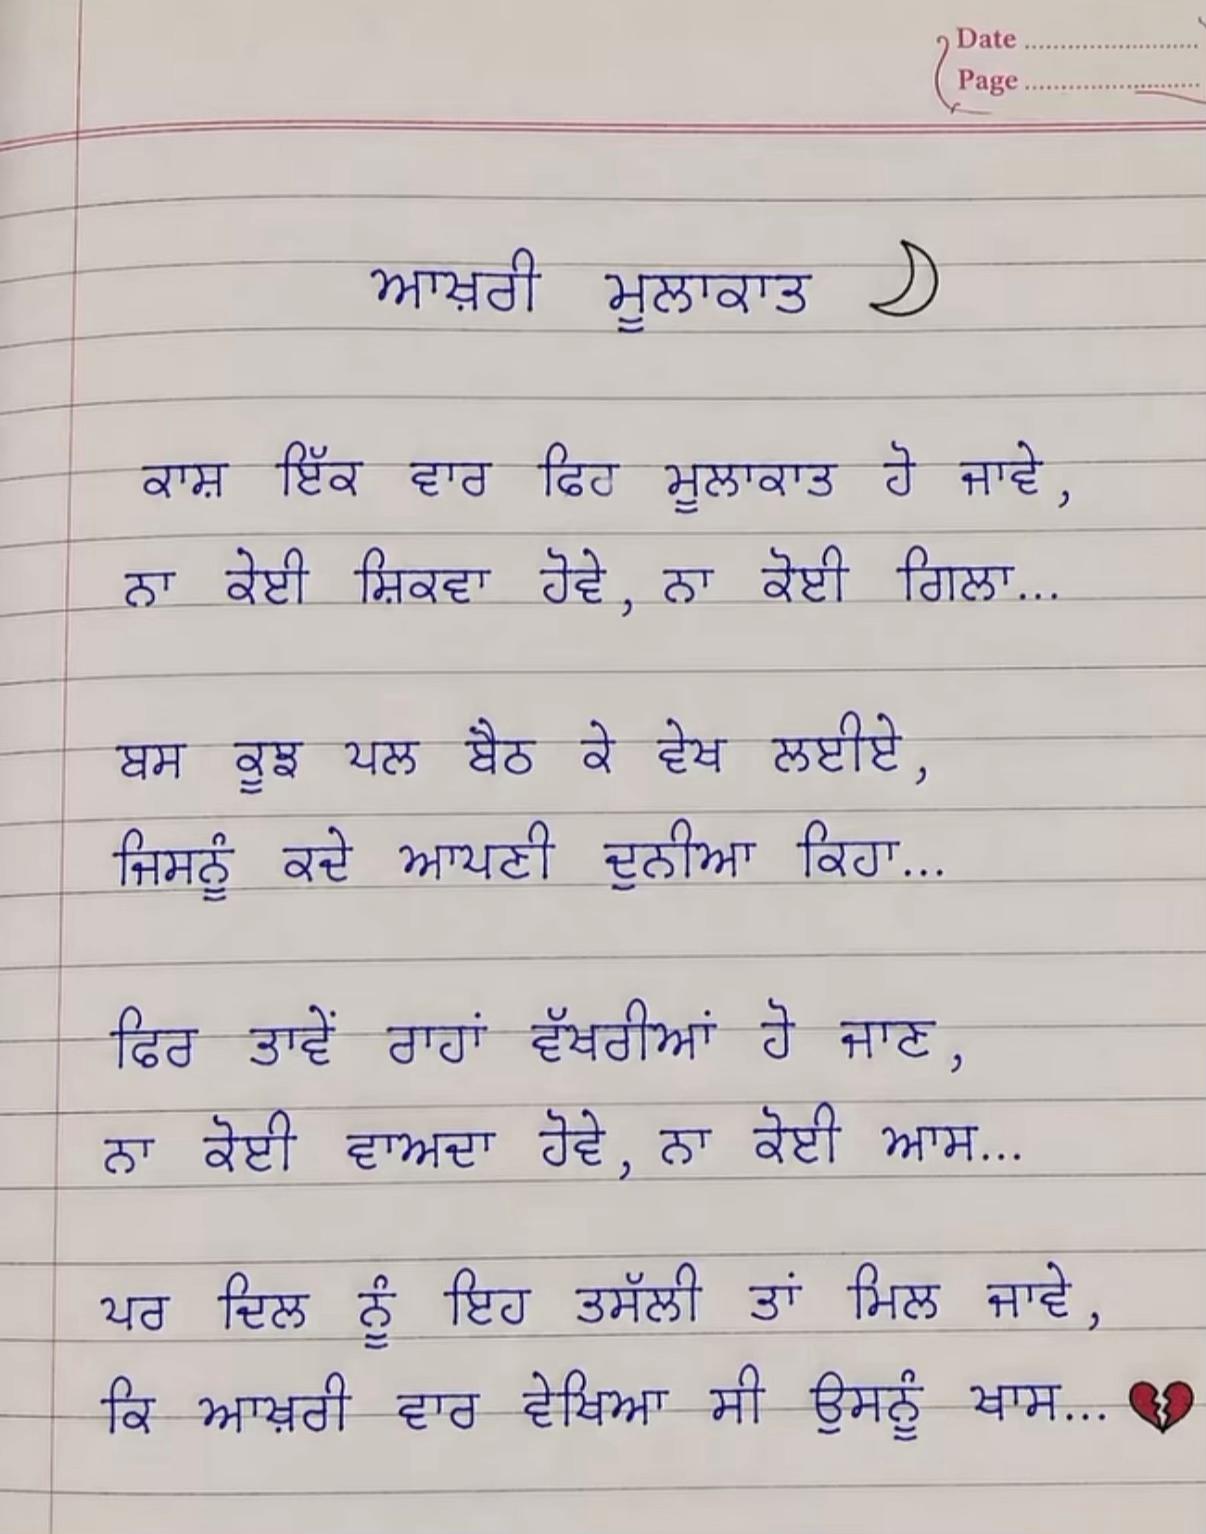 Date
Page
ਆਖ਼ਰੀ ਮੂਲਾਕਾਤ
ਕਾਸ਼ ਇੱਕ ਵਾਰ ਫਿਰ ਮੂਲਾਕਾਤ ਹੋ ਜਾਵੇ,
ਨਾ ਕੇਈ ਸ਼ਿਕਵਾ ਹੋਵੇ, ਨਾ ਕੋਈ ਗਿਲਾ...
ਬਸ ਕੂਝ ਪਲ ਬੈਠ ਕੇ ਵੇਖ ਲਈਏ,
ਜਿਸਨੂੰ ਕਦੇ ਆਪਣੀ ਦੁਨੀਆ ਕਿਹਾ...
ਫਿਰ ਤਾਵੇਂ ਰਾਹਾਂ ਵੱਖਰੀਆਂ ਹੋ ਜਾਣ,
ਨਾ ਕੋਈ ਵਾਅਦਾ ਹੋਵੇ, ਨਾ ਕੋਈ ਆਸ...
ਪਰ ਦਿਲ ਨੂੰ ਇਹ ਤਸੱਲੀ ਤਾਂ ਮਿਲ ਜਾਵੇ,
ਕਿ ਆਖ਼ਰੀ ਵਾਰ ਵੇਖਿਆ ਸੀ ਉਸਨੂੰ ਖਾਸ...